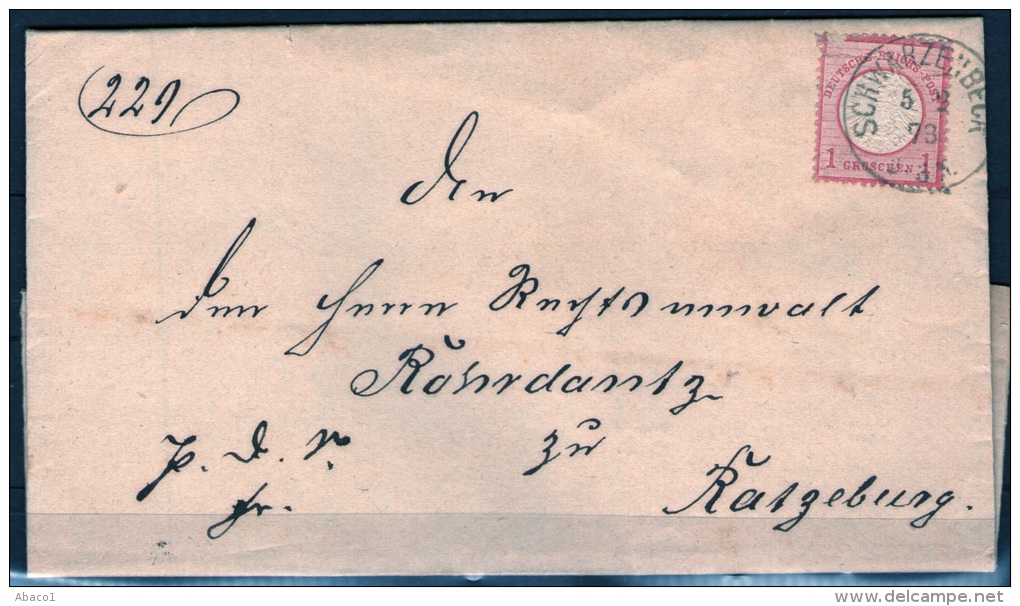 229
SCHWARZENBECK
5 2
73
DEUTSCHE REICHS-POST
1 GROSCHEN 1
An
den Herrn Rechtsanwalt
Röhrdantz
zu
p. d. r.
fr.
Ratzeburg.
Abaco1
www.delcampe.net